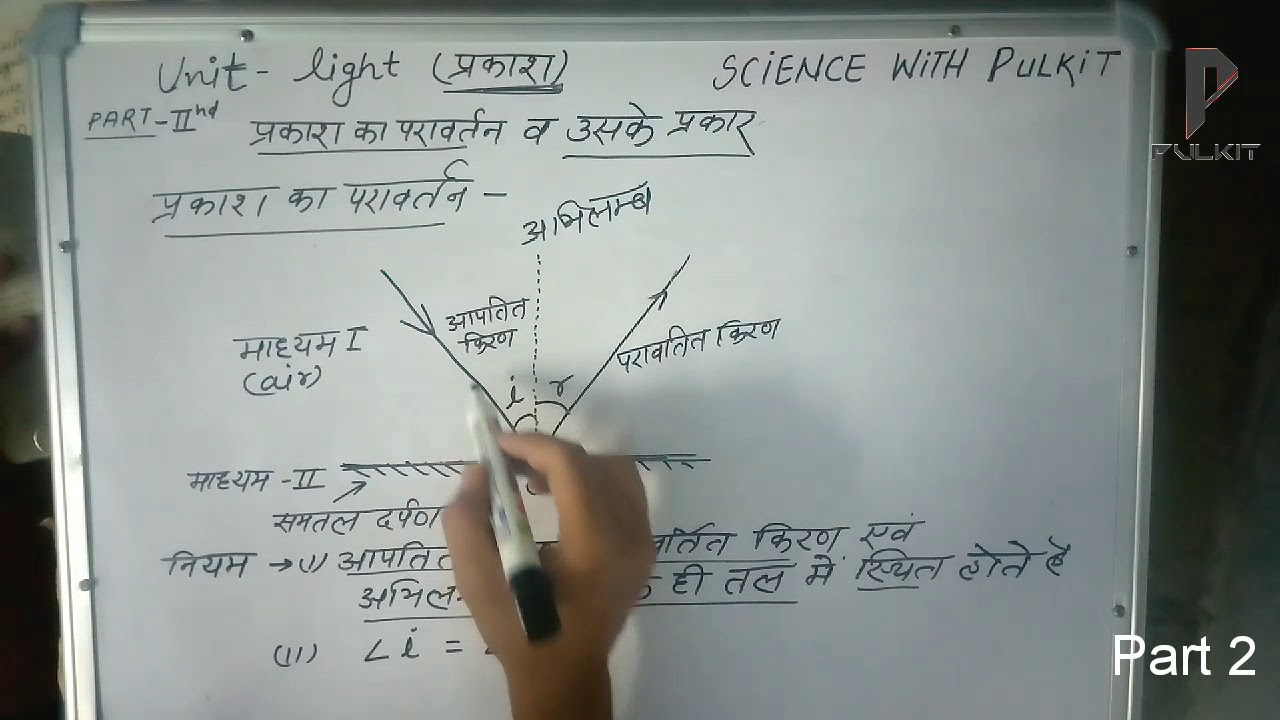 Unit - light (प्रकाश)
SCIENCE WITH PULKIT
PULKIT
PART-IInd
प्रकाश का परावर्तन व उसके प्रकार
प्रकाश का परावर्तन -
अभिलम्ब
आपतित
किरण
परावर्तित किरण
माध्यम I
(air)
i r
माध्यम -II
समतल दर्पण
नियम → (i) आपतित किरण एवं
ही तल में स्थित होते है
(ii) ∠i =
Part 2